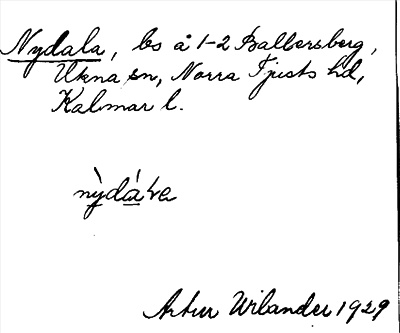 Nydala, bs å 1-2 Balbersberg,
Ukna sn, Norra Tjusts hd,
Kalmar l.
nỳdáʹla
Artur Wilander 1929